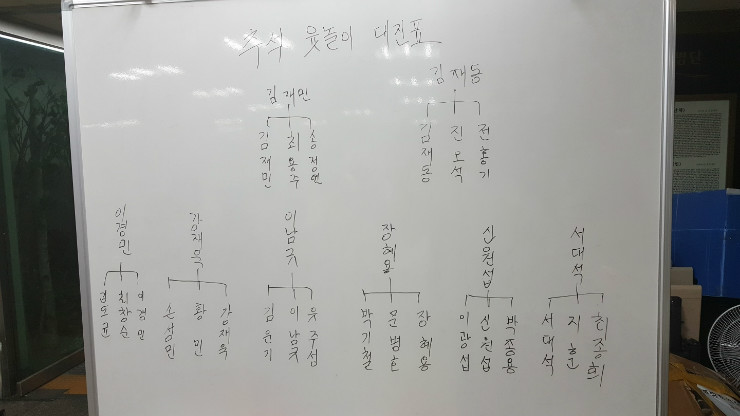 추석 윷놀이 대진표
김재민
김재민 최용수 송정연
김재동
김재동 진모석 전홍기
이경민
최창순 이경민
강재욱
손성민 황민 강재욱
이남국
김윤기 이남국 윷주섭
장혜용
박기철 문범호 장혜용
신원섭
이광섭 신원섭 박종용
서대석
서대석 지훈 최종희